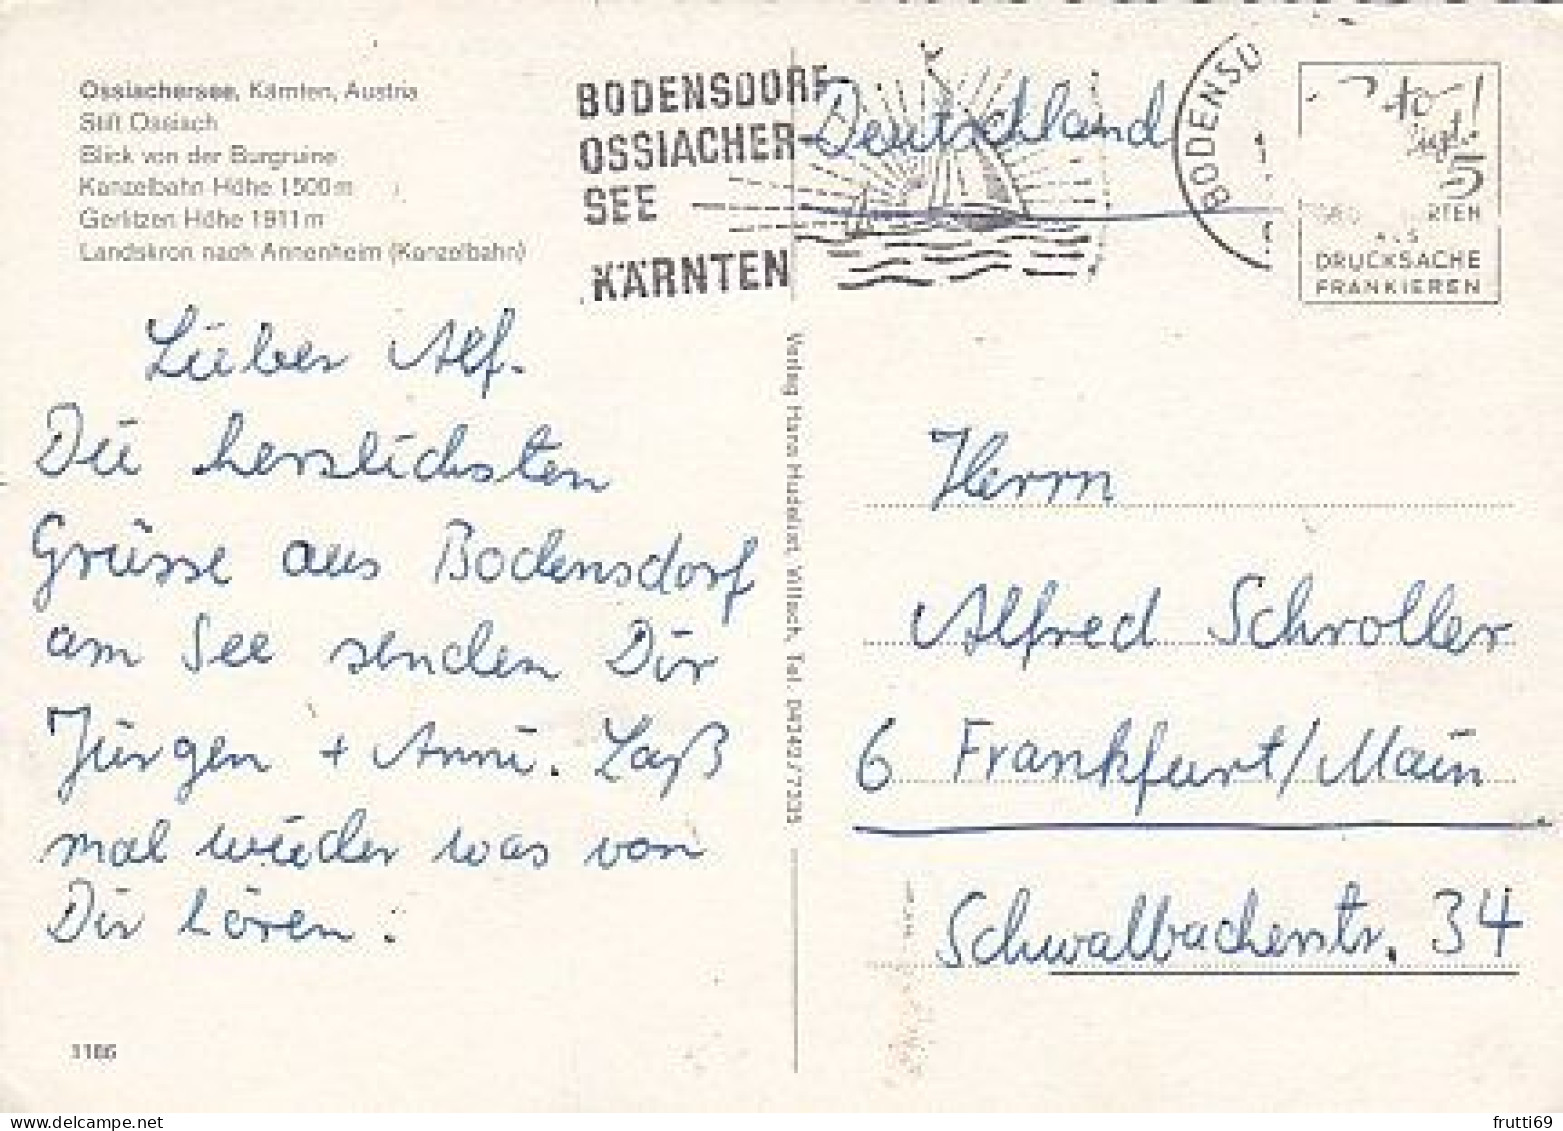 Ossiachersee, Kärnten, Austria
Stift Ossiach
Blick von der Burgruine
Kanzelbahn Höhe 1500 m
Gerlitzen Höhe 1911 m
Landskron nach Annenheim (Kanzelbahn)
BODENSDORF
OSSIACHER-
SEE
KÄRNTEN
Deutschland
BODENSD
5
RTEN
ALS
DRUCKSACHE
FRANKIEREN
Lieber Alf.
Die herzlichsten
Grüsse aus Bodensdorf
am See senden Dir
Jürgen + Anni. Laß
mal wieder was von
Dir hören.
1186
Verlag Hans Hudelist, Villach, Tel. 04242/7335
Herrn
Alfred Schroller
6 Frankfurt/Main
Schwalbacherstr. 34
frutti69